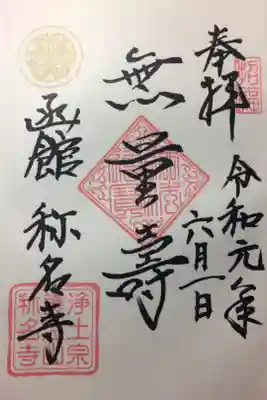 奉拝
招福
令和元年
六月一日
無量壽
函館 称名寺
浄土宗
称名寺